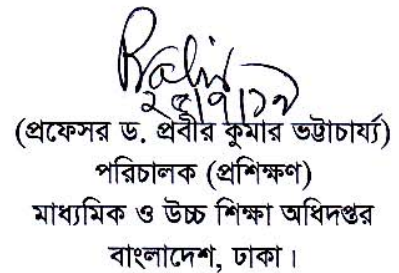 (প্রফেসর ড. প্রবীর কুমার ভট্টাচার্য্য)
পরিচালক (প্রশিক্ষণ)
মাধ্যমিক ও উচ্চ শিক্ষা অধিদপ্তর
বাংলাদেশ, ঢাকা।